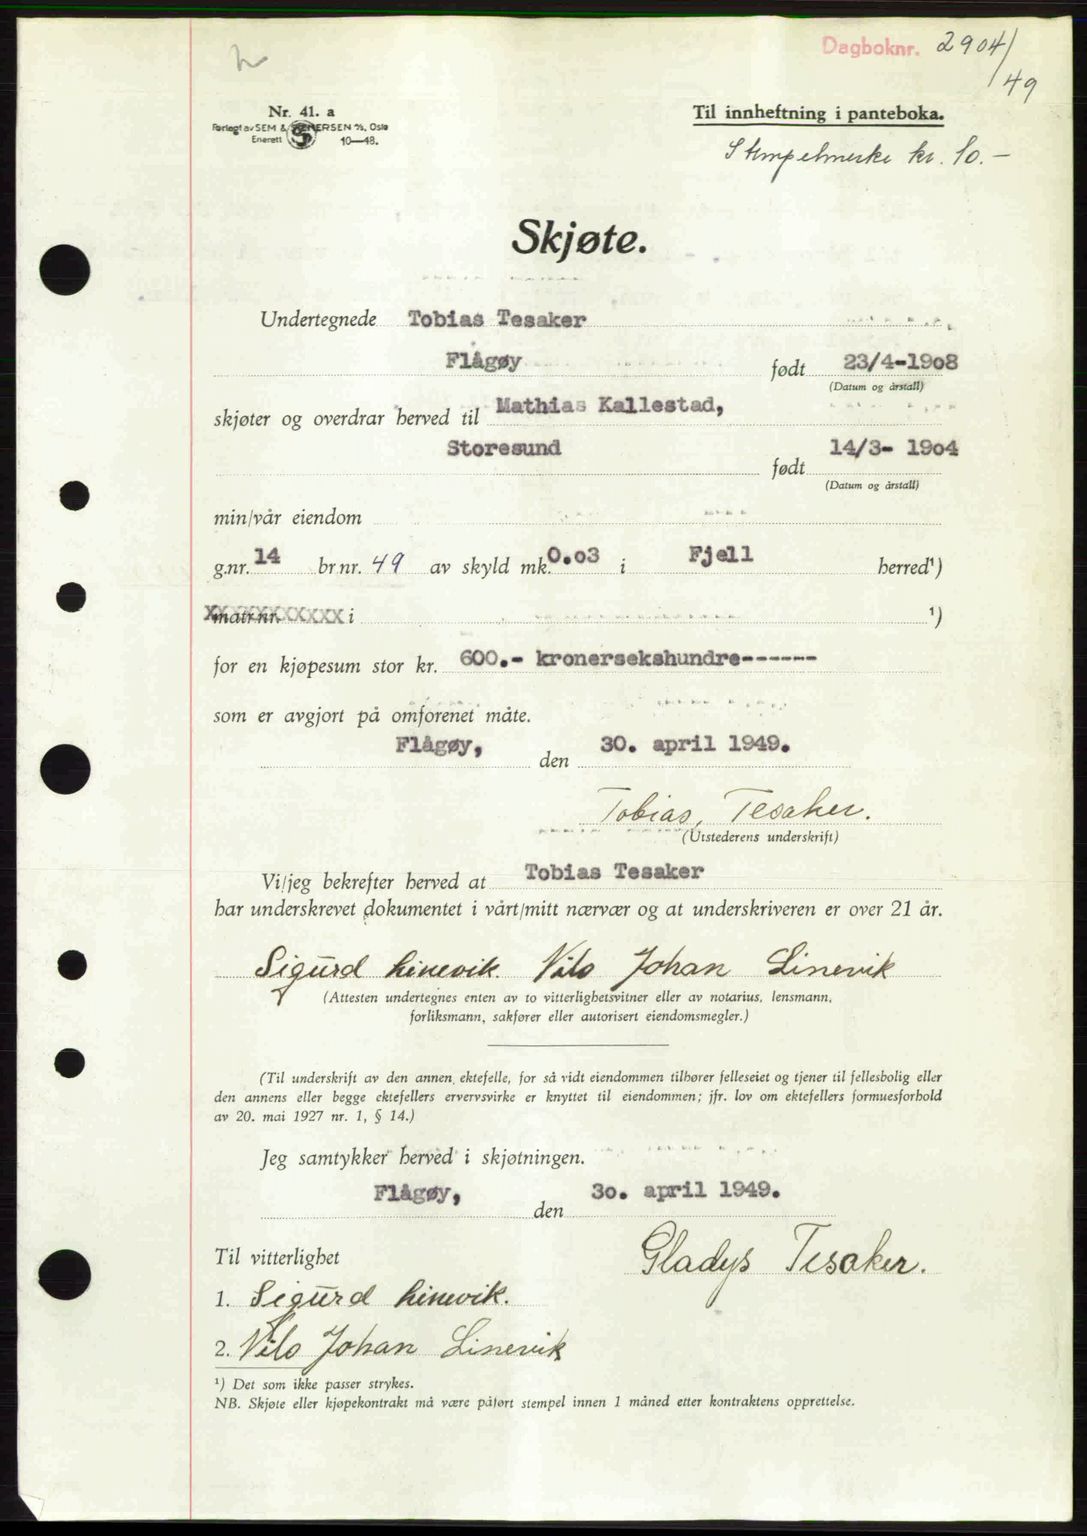 Dagboknr. 2904/49
Nr. 41. a
Forlagt av SEM & STENERSEN A/S, Oslo
Enerett 10—48.
Til innheftning i panteboka.
Stempelmerke kr. 10.-
Skjøte.
Undertegnede Tobias Tesaker
Flågøy født 23/4-1908
(Datum og årstall)
skjøter og overdrar herved til Mathias Kallestad,
Storesund født 14/3- 1904
(Datum og årstall)
min/vår eiendom
g.nr. 14 br nr. 49 av skyld mk. 0.03 i Fjell herred¹)
matr nr. i ¹)
for en kjøpesum stor kr. 600.- kronersekshundre------
som er avgjort på omforenet måte.
Flågøy, den 30. april 1949.
Tobias, Tesaker.
(Utstederens underskrift)
Vi/jeg bekrefter herved at Tobias Tesaker
har underskrevet dokumentet i vårt/mitt nærvær og at underskriveren er over 21 år.
Sigurd Linevik. Nils Johan Linevik
(Attesten undertegnes enten av to vitterlighetsvitner eller av notarius, lensmann,
forliksmann, sakfører eller autorisert eiendomsmegler.)
(Til underskrift av den annen ektefelle, for så vidt eiendommen tilhører felleseiet og tjener til fellesbolig eller
den annens eller begge ektefellers ervervsvirke er knyttet til eiendommen; jfr. lov om ektefellers formuesforhold
av 20. mai 1927 nr. 1, § 14.)
Jeg samtykker herved i skjøtningen.
Flågøy, den 30. april 1949.
Til vitterlighet
Gladys Tesaker.
1. Sigurd Linevik.
2. Nils Johan Linevik
¹) Det som ikke passer strykes.
NB. Skjøte eller kjøpekontrakt må være påført stempel innen 1 måned etter kontraktens opprettelse.